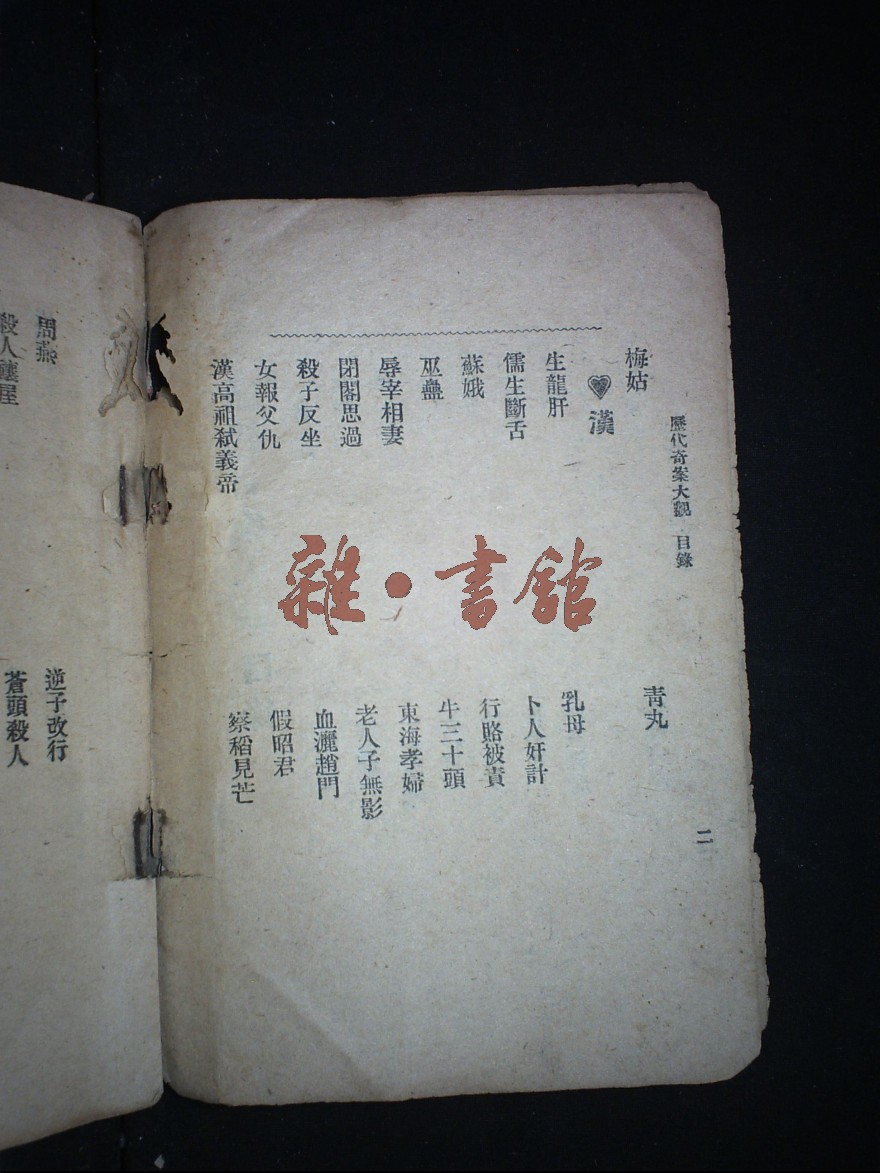 歷代奇案大觀 目錄
二
梅姑
青丸
漢
生龍肝
乳母
儒生斷舌
卜人奸計
蘇娥
行賂被責
巫蠱
牛三十頭
辱宰相妻
東海孝婦
閉閣思過
老人子無影
殺子反坐
血灑趙門
女報父仇
假昭君
漢高祖弒義帝
察稻見芒
周燕
逆子改行
殺人讓屋
蒼頭殺人
雜·書館